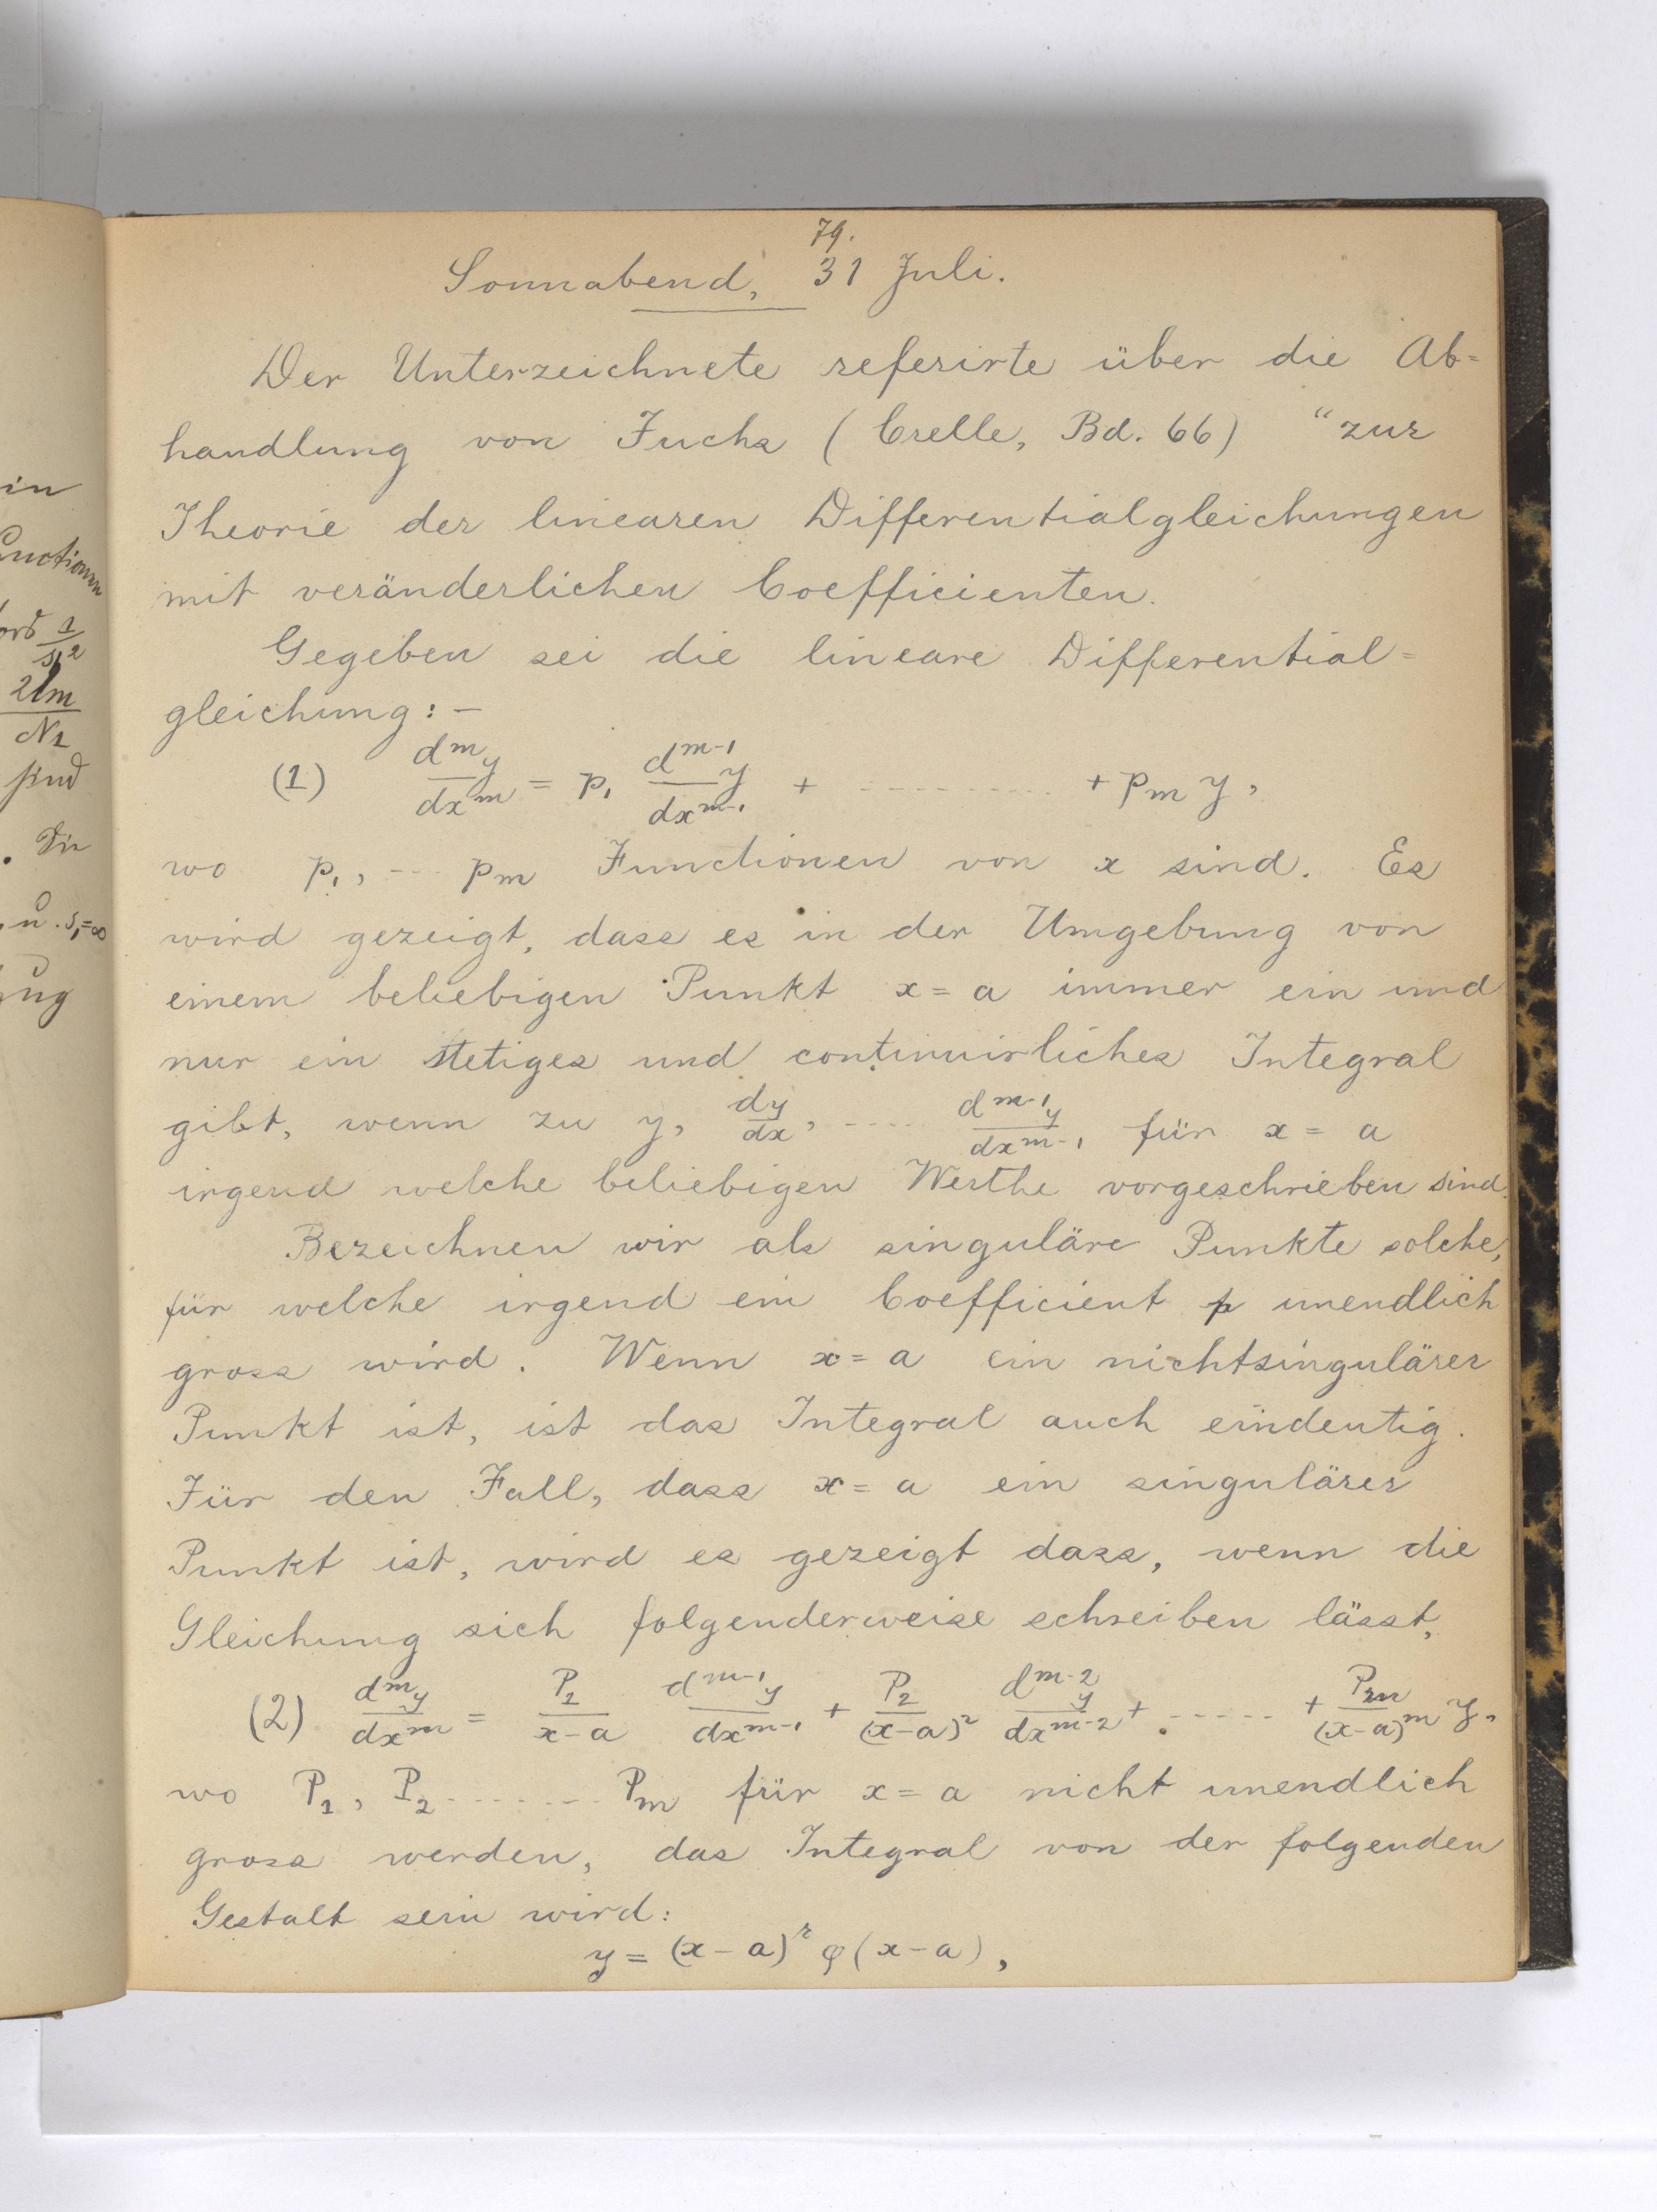 79.
Sonnabend, 31 Juli.
Der Unterzeichnete referirte über die Ab=
handlung von Fuchs (Crelle, Bd. 66) "zur
Theorie der linearen Differentialgleichungen
mit veränderlichen Coefficienten.
Gegeben sei die lineare Differential=
gleichung:-
(1) d^m y/dx^m = p₁ d^{m-1}y/dx^{m-1} + ---------- + p_m y,
wo p₁, --- p_m Functionen von x sind. Es
wird gezeigt, dass es in der Umgebung von
einem beliebigen Punkt x = a immer ein und
nur ein stetiges und continuirliches Integral
gibt, wenn zu y, dy/dx, ---- d^{m-1}y/dx^{m-1} für x = a
irgend welche beliebigen Werthe vorgeschrieben sind.
Bezeichnen wir als singuläre Punkte solche,
für welche irgend ein Coefficient p unendlich
gross wird. Wenn x = a ein nichtsingulärer
Punkt ist, ist das Integral auch eindeutig.
Für den Fall, dass x = a ein singulärer
Punkt ist, wird es gezeigt dass, wenn die
Gleichung sich folgenderweise schreiben lässt,
(2) d^m y/dx^m = P₁/(x-a) d^{m-1}y/dx^{m-1} + P₂/(x-a)² d^{m-2}y/dx^{m-2} + ------ + P_m/(x-a)^m y,
wo P₁, P₂ ------- P_m für x = a nicht unendlich
gross werden, das Integral von der folgenden
Gestalt sein wird:
y = (x-a)^r φ(x-a),
in
1
2
N₁
sind
. Die
u. s₁=∞